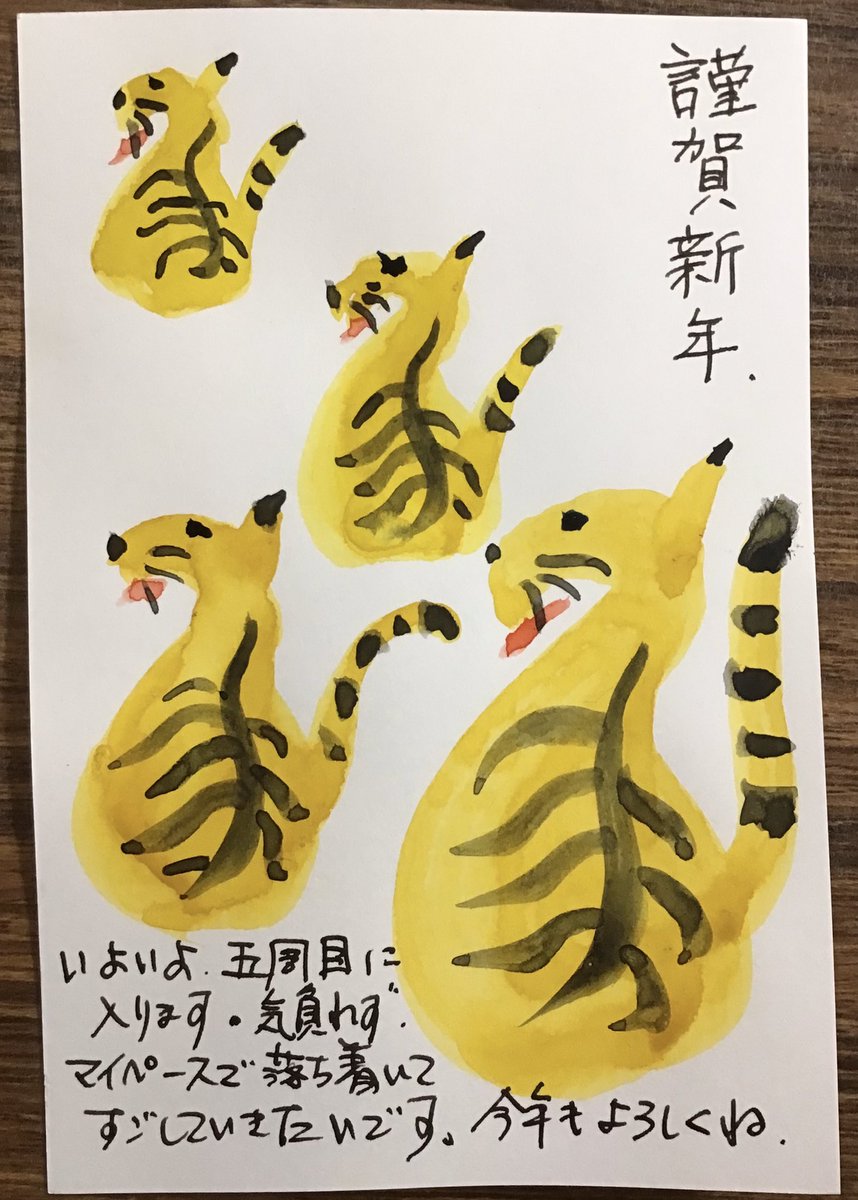 謹賀新年.
いよいよ.五周目に
入ります。気負わず.
マイペースで落ち着いて
すごしていきたいです。今年もよろしくね.